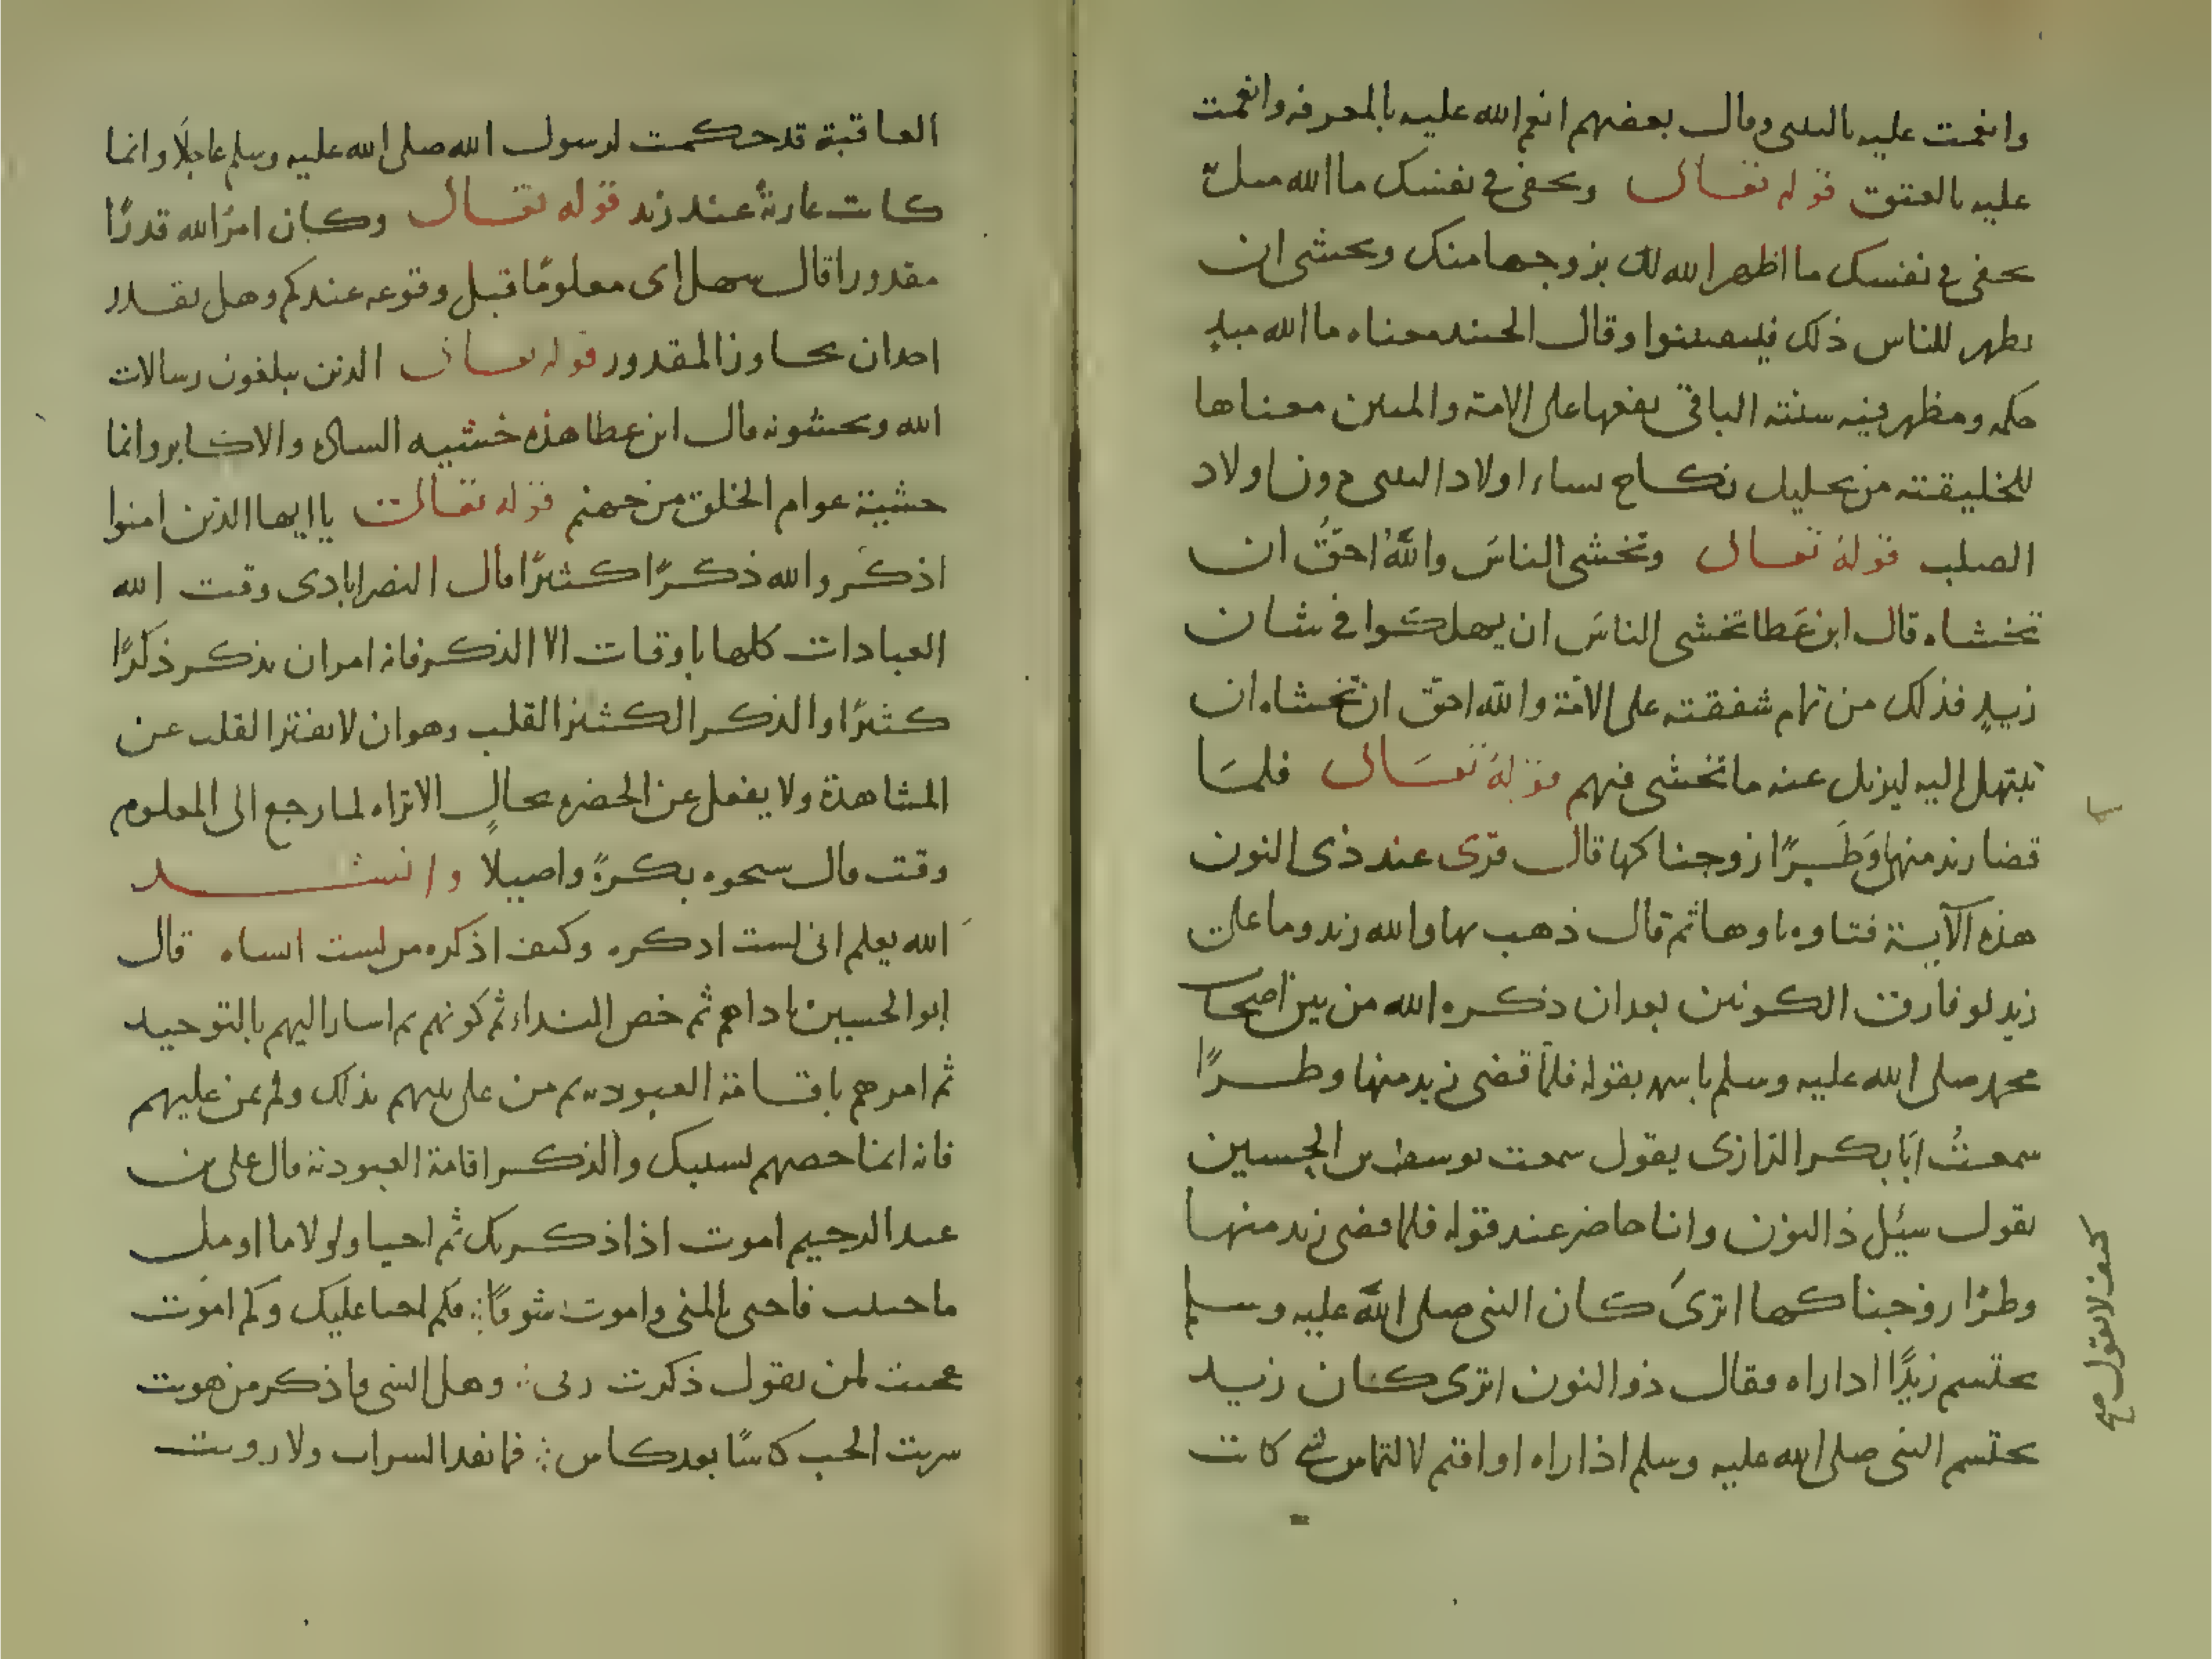 وانعمت عليه بالتبنى وقال بعضهم انعم الله عليه بالمعرفة وانعمت
عليه بالعتق قوله تعالى وتخفى فى نفسك ما الله مبديه
تخفى فى نفسك ما اظهر الله لك بزوجها منك وتخشى ان
يظهر للناس ذلك فيفتتنوا وقال الجنيد معناه ما الله مبد
حكمه ومظهر فيه سنته الباقى نفعها على الامة والمبين معناها
للخليقته من تحليل نكاح نساء اولاد التبنى دون اولاد
الصلب قوله تعالى وتخشى الناسَ واللهُ احقُّ ان
تخشاه قال ابن عَطا تخشى الناسَ ان يهلكوا فى شان
زيدٍ فذلك من تمام شفقته على الامّة والله احقّ ان تخشاه ان
تبتهل اليه ليزيل عنه ما تخشى فيهم قوله تعالى فلمّا
قضا زيد منها وَطَرًا زوجناكها قال قرى عند ذى النون
هذه الآية فتاوه تاوها ثم قال ذهب بها والله زيد وما على
زيد لو فارق الكونين بعد ان ذكره الله من بين اصحاب
محمد صلى الله عليه وسلم باسمه بقوله فلمّا قضى زيد منها وطرًا
سمعتُ اَبَا بكر الرازى يقول سمعت يوسف بن الحسين
يقول سئل ذا النون وانا حاضر عند قوله فلما قضى زيد منها
وطرًا زوجناكها اترىَ كان النبى صلى اللَّه عليه وسلم
يحتشم زيدًا اذا راه فقال ذو النون اترى كان زيد
يحتشم النبى صلى الله عليه وسلم اذا راه او اقيم لالتماس شئ كانت
كيف لا يقول صح
العاقبة قد حكمت لرسول الله صلى الله عليه وسلم عاجلًا وانما
كانت عاريةً عند زيد قوله تعالى وكان امرُ الله قدرًا
مقدورا قال سهل اى معلومًا قبل وقوعه عندكم وهل يقدر
احد ان يجاوز المقدور قوله تعالى الذين يبلغون رسالات
الله ويخشونه قال ابن عطا هذه خشيه السادة والاكابر وانما
خشية عوام الخلق من جهنم قوله تعالى يا ايها الذين امنوا
اذكروا الله ذكرًا كثيرًا قال النصرابادى وقت الله
العبادات كلها باوقات الا الذكر فانه امر ان يذكر ذكرًا
كثيرًا والذكر الكثير القلب وهو ان لا يفتر القلب عن
المشاهدة ولا يغفل عن الحضرة بحالٍ الا تراه لما رجع الى المعلوم
وقت قال سبحوه بكرةً واصيلا وانشد
الله يعلم انى لست اذكره وكيف اذكره من لست انساه قال
ابو الحسين ناداهم ثم خص النداء ثم كونهم ثم اشار اليهم بالتوحيد
ثم امرهم باقامة العبودية ثم من على نبيهم بذلك ولم يمن عليهم
فانه انما خصهم والذكر اقامة العبودية قال على بن
عبد الرحيم اموت اذا ذكرتك ثم احيا ولولا ما اومل
ما حييت فاحيى بالمنى واموت شوقًا فكم احيا عليك وكم اموت
عجبت لمن يقول ذكرت ربى وهل انسى فاذكر من هويت
شربت الحب كاسًا بعد كاس فما نفد الشراب ولا رويت